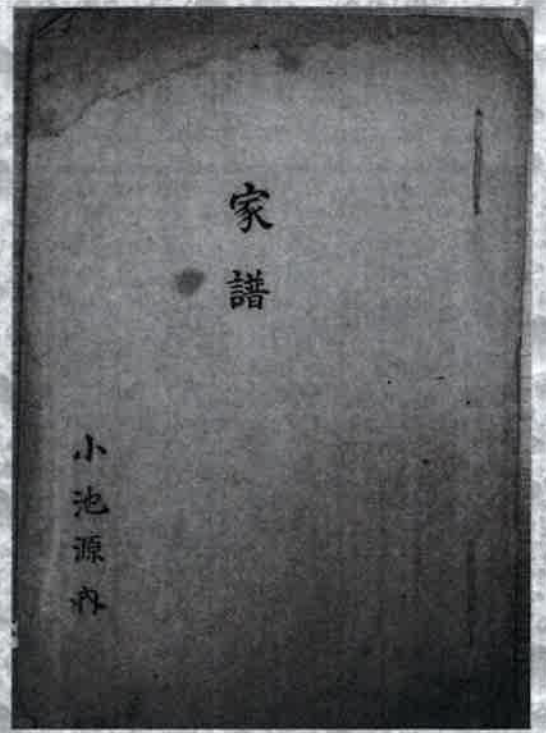 家譜
小池源内